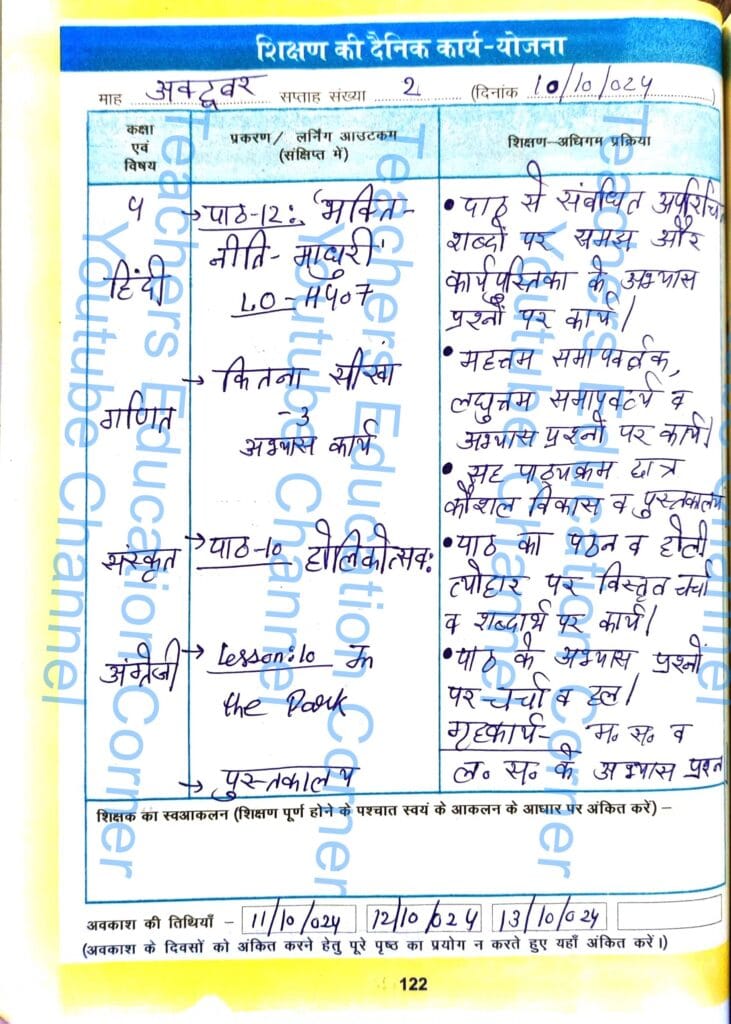 शिक्षण की दैनिक कार्य-योजना
माह अक्टूबर सप्ताह संख्या 2 (दिनांक 10/10/024)
कक्षा एवं विषय
प्रकरण/ लर्निंग आउटकम (संक्षिप्त में)
शिक्षण-अधिगम प्रक्रिया
५
हिंदी
→ पाठ-12: 'भक्ति-
नीति- माधुरी'
LO-H507
• पाठ से संबंधित अपरिचित
शब्दों पर समझ और
कार्यपुस्तिका के अभ्यास
प्रश्नों पर कार्य।
गणित
→ कितना सीखा
-3
अभ्यास कार्य
• महत्तम समापवर्त्तक,
लघुत्तम समापवर्त्य व
अभ्यास प्रश्नों पर कार्य।
• सह पाठ्यक्रम छात्र
कौशल विकास व पुस्तकालय
संस्कृत
→ पाठ-10 होलिकोत्सव:
• पाठ का पठन व होली
त्योहार पर विस्तृत चर्चा
व शब्दार्थ पर कार्य।
अंग्रेजी
→ Lesson:10 In
the Park
• पाठ के अभ्यास प्रश्नों
पर चर्चा व हल।
गृहकार्य- म. स. व
ल. स. के अभ्यास प्रश्न
→ पुस्तकालय
शिक्षक का स्वआकलन (शिक्षण पूर्ण होने के पश्चात स्वयं के आकलन के आधार पर अंकित करें) –
अवकाश की तिथियाँ - 11/10/024 12/10/024 13/10/024
(अवकाश के दिवसों को अंकित करने हेतु पूरे पृष्ठ का प्रयोग न करते हुए यहाँ अंकित करें।)
122
Teachers Education Corner
Youtube Channel
Teachers Education Corner
Youtube Channel
Teachers Education Corner
Youtube Channel